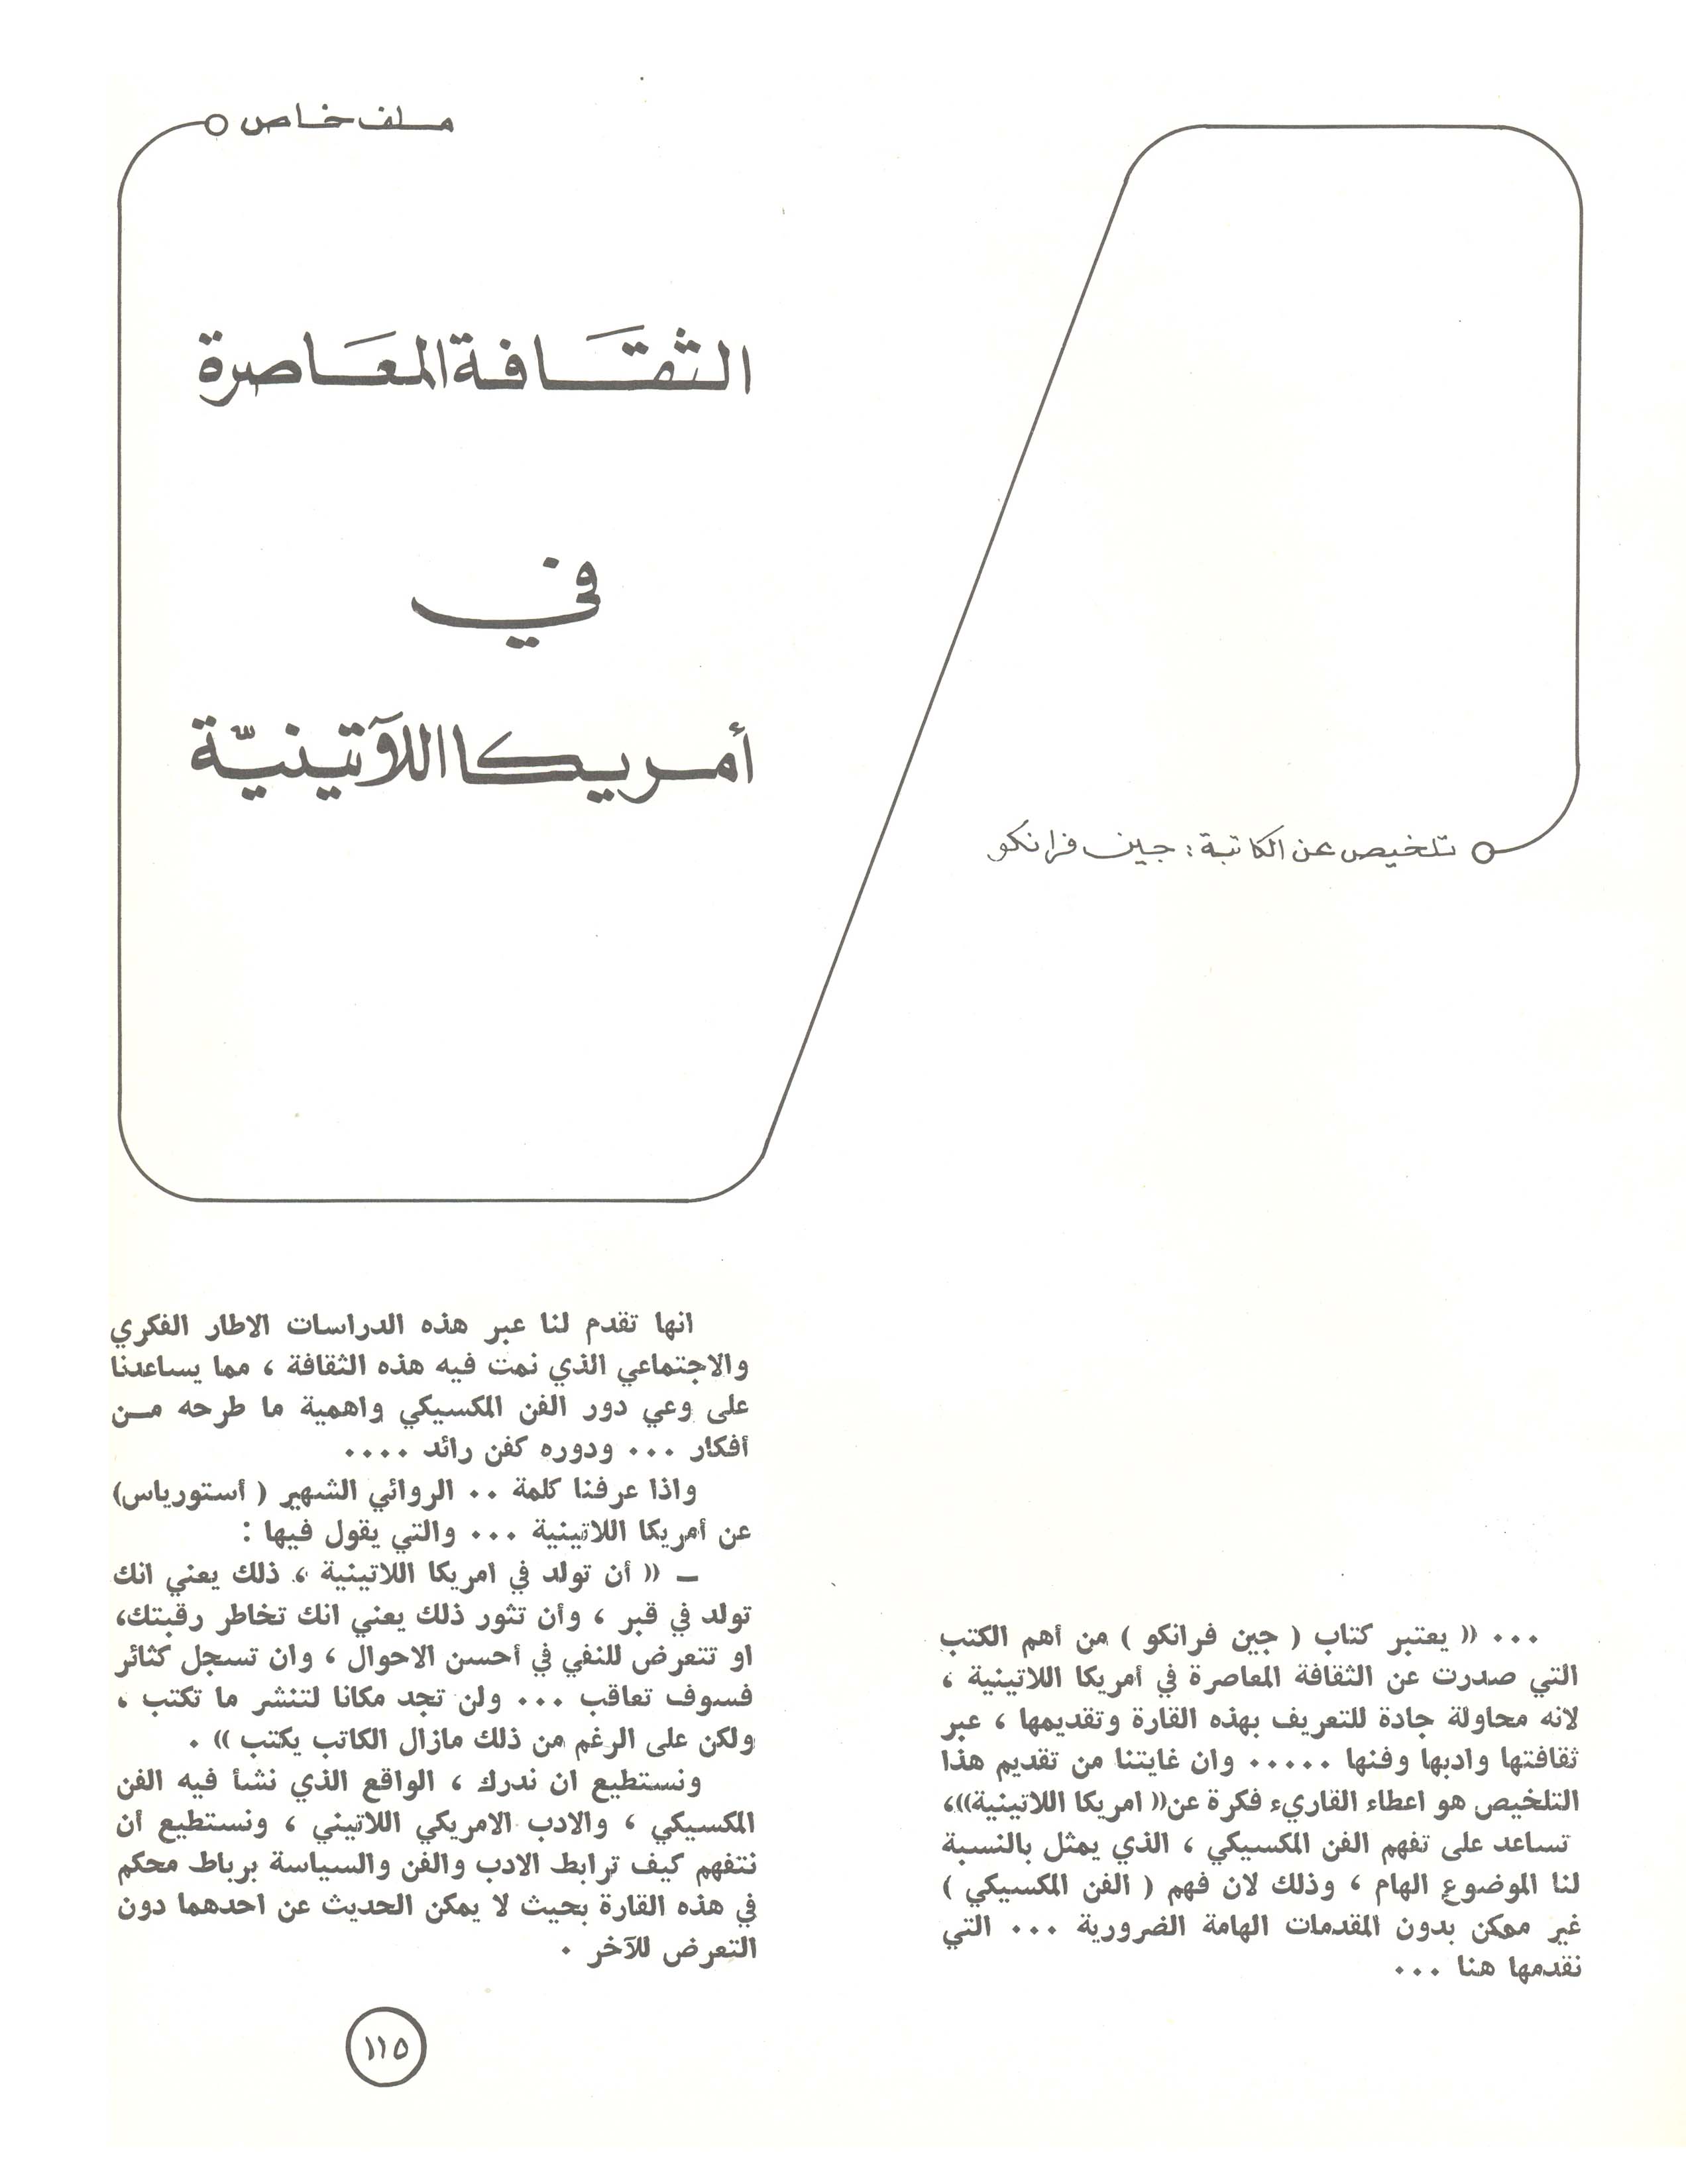 ملف خاص
الثقَافة المعَاصرة
في
أمريكا اللآتينيّة
تلخيص عن الكاتبة : جين فرانكو
... (( يعتبر كتاب ( جين فرانكو ) من أهم الكتب
التي صدرت عن الثقافة المعاصرة في أمريكا اللاتينية ،
لانه محاولة جادة للتعريف بهذه القارة وتقديمها ، عبر
ثقافتها وادبها وفنها ..... وان غايتنا من تقديم هذا
التلخيص هو اعطاء القاريء فكرة عن(( امريكا اللاتينية))،
تساعد على تفهم الفن المكسيكي ، الذي يمثل بالنسبة
لنا الموضوع الهام ، وذلك لان فهم ( الفن المكسيكي )
غير ممكن بدون المقدمات الهامة الضرورية ... التي
نقدمها هنا ...
انها تقدم لنا عبر هذه الدراسات الاطار الفكري
والاجتماعي الذي نمت فيه هذه الثقافة ، مما يساعدنا
على وعي دور الفن المكسيكي واهمية ما طرحه مـن
أفكار ... ودوره كفن رائد ....
واذا عرفنا كلمة .. الروائي الشهير ( أستورياس)
عن أمريكا اللاتينية ... والتي يقول فيها :
ـ (( أن تولد في امريكا اللاتينية ، ذلك يعني انك
تولد في قبر ، وأن تثور ذلك يعني انك تخاطر رقبتك،
او تتعرض للنفي في أحسن الاحوال ، وان تسجل كثائر
فسوف تعاقب ... ولن تجد مكانا لتنشر ما تكتب ،
ولكن على الرغم من ذلك مازال الكاتب يكتب )) .
ونستطيع ان ندرك ، الواقع الذي نشأ فيه الفن
المكسيكي ، والادب الامريكي اللاتيني ، ونستطيع أن
نتفهم كيف ترابط الادب والفن والسياسة برباط محكم
في هذه القارة بحيث لا يمكن الحديث عن احدهما دون
التعرض للآخر .
١١٥